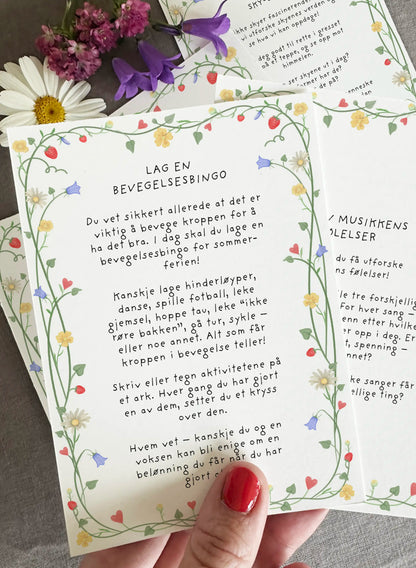 LAG EN
BEVEGELSESBINGO
Du vet sikkert allerede at det er
viktig å bevege kroppen for å
ha det bra. I dag skal du lage en
bevegelsesbingo for sommer-
ferien!
Kanskje lage hinderløyper,
danse, spille fotball, leke
gjemsel, hoppe tau, leke “ikke
røre bakken”, gå tur, sykle –
eller noe annet. Alt som får
kroppen i bevegelse teller!
Skriv eller tegn aktivitetene på
et ark. Hver gang du har gjort
en av dem, setter du et kryss
over den.
Hvem vet – kanskje du og en
voksen kan bli enige om en
belønning du får når du har
gjort
SKY-
ikke skyet fascinerende
vi utforske skyenes verden og
se hva vi kan oppdage!
deg godt til rette i gresset
på et teppe, og se opp mot
himmelen.
ser skyene ut i dag?
MUSIKKENS
ØLELSER
du få utforske
ns følelser!
lle tre forskjellig
For hver sang –
enn etter hvilke
r opp i deg. Er
t, spenning –
nnet?
ke sanger får
tellige ting?